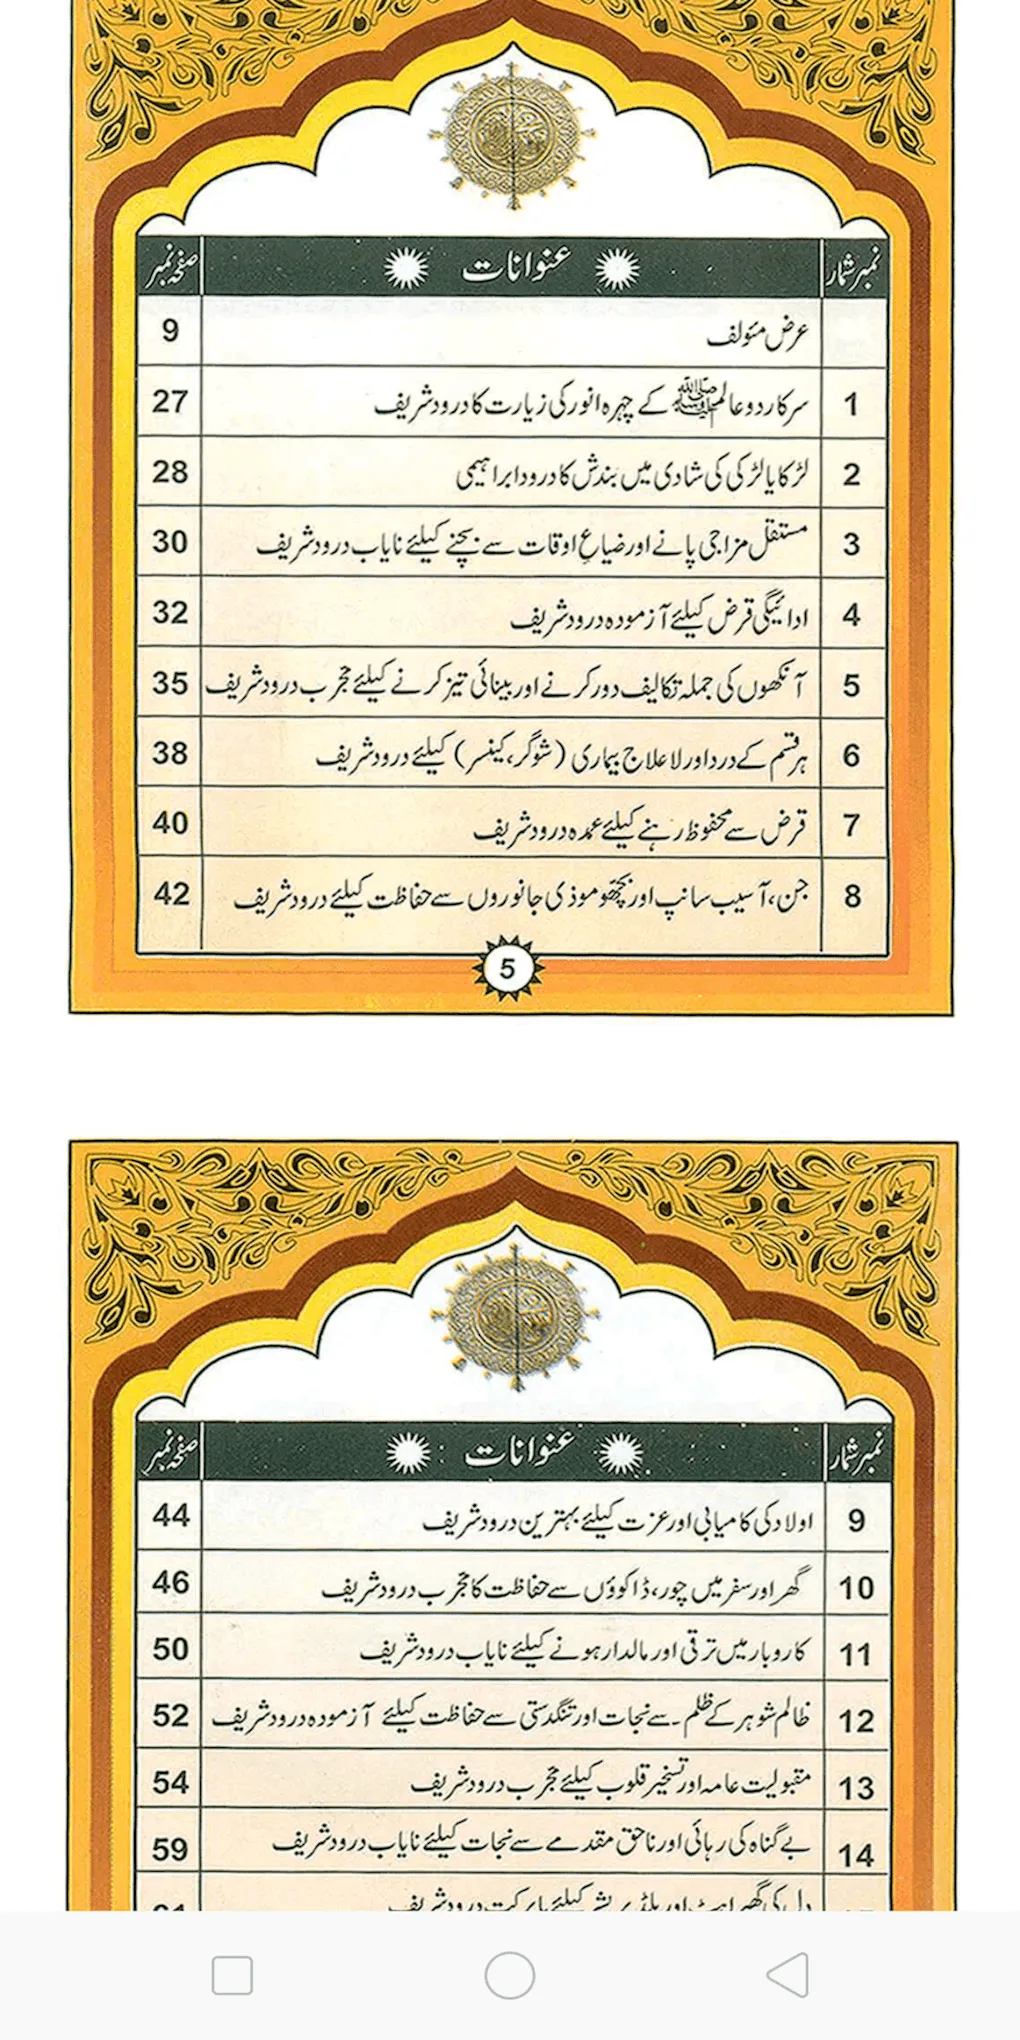 نمبر شمار عنوانات صفحہ نمبر
عرض مئولف 9
1 سرکار دو عالم ﷺ کے چہرہ انور کی زیارت کا درود شریف 27
2 لڑکا یا لڑکی کی شادی میں بندش کا درود ابراہیمی 28
3 مستقل مزاجی پانے اور ضیاعِ اوقات سے بچنے کیلئے نایاب درود شریف 30
4 ادائیگی قرض کیلئے آزمودہ درود شریف 32
5 آنکھوں کی جملہ تکالیف دور کرنے اور بینائی تیز کرنے کیلئے مجرب درود شریف 35
6 ہر قسم کے درد اور لاعلاج بیماری (شوگر، کینسر) کیلئے درود شریف 38
7 قرض سے محفوظ رہنے کیلئے عمدہ درود شریف 40
8 جن، آسیب سانپ اور بچھو موذی جانوروں سے حفاظت کیلئے درود شریف 42
5
نمبر شمار عنوانات صفحہ نمبر
9 اولاد کی کامیابی اور عزت کیلئے بہترین درود شریف 44
10 گھر اور سفر میں چور، ڈاکوؤں سے حفاظت کا مجرب درود شریف 46
11 کاروبار میں ترقی اور مالدار ہونے کیلئے نایاب درود شریف 50
12 ظالم شوہر کے ظلم۔ سے نجات اور تنگدستی سے حفاظت کیلئے آزمودہ درود شریف 52
13 مقبولیت عامہ اور تسخیر قلوب کیلئے مجرب درود شریف 54
14 بے گناہ کی رہائی اور ناحق مقدمے سے نجات کیلئے نایاب درود شریف 59
دل کی گھبراہٹ اور بلڈ پریشر کیلئے بابرکت درود شریف